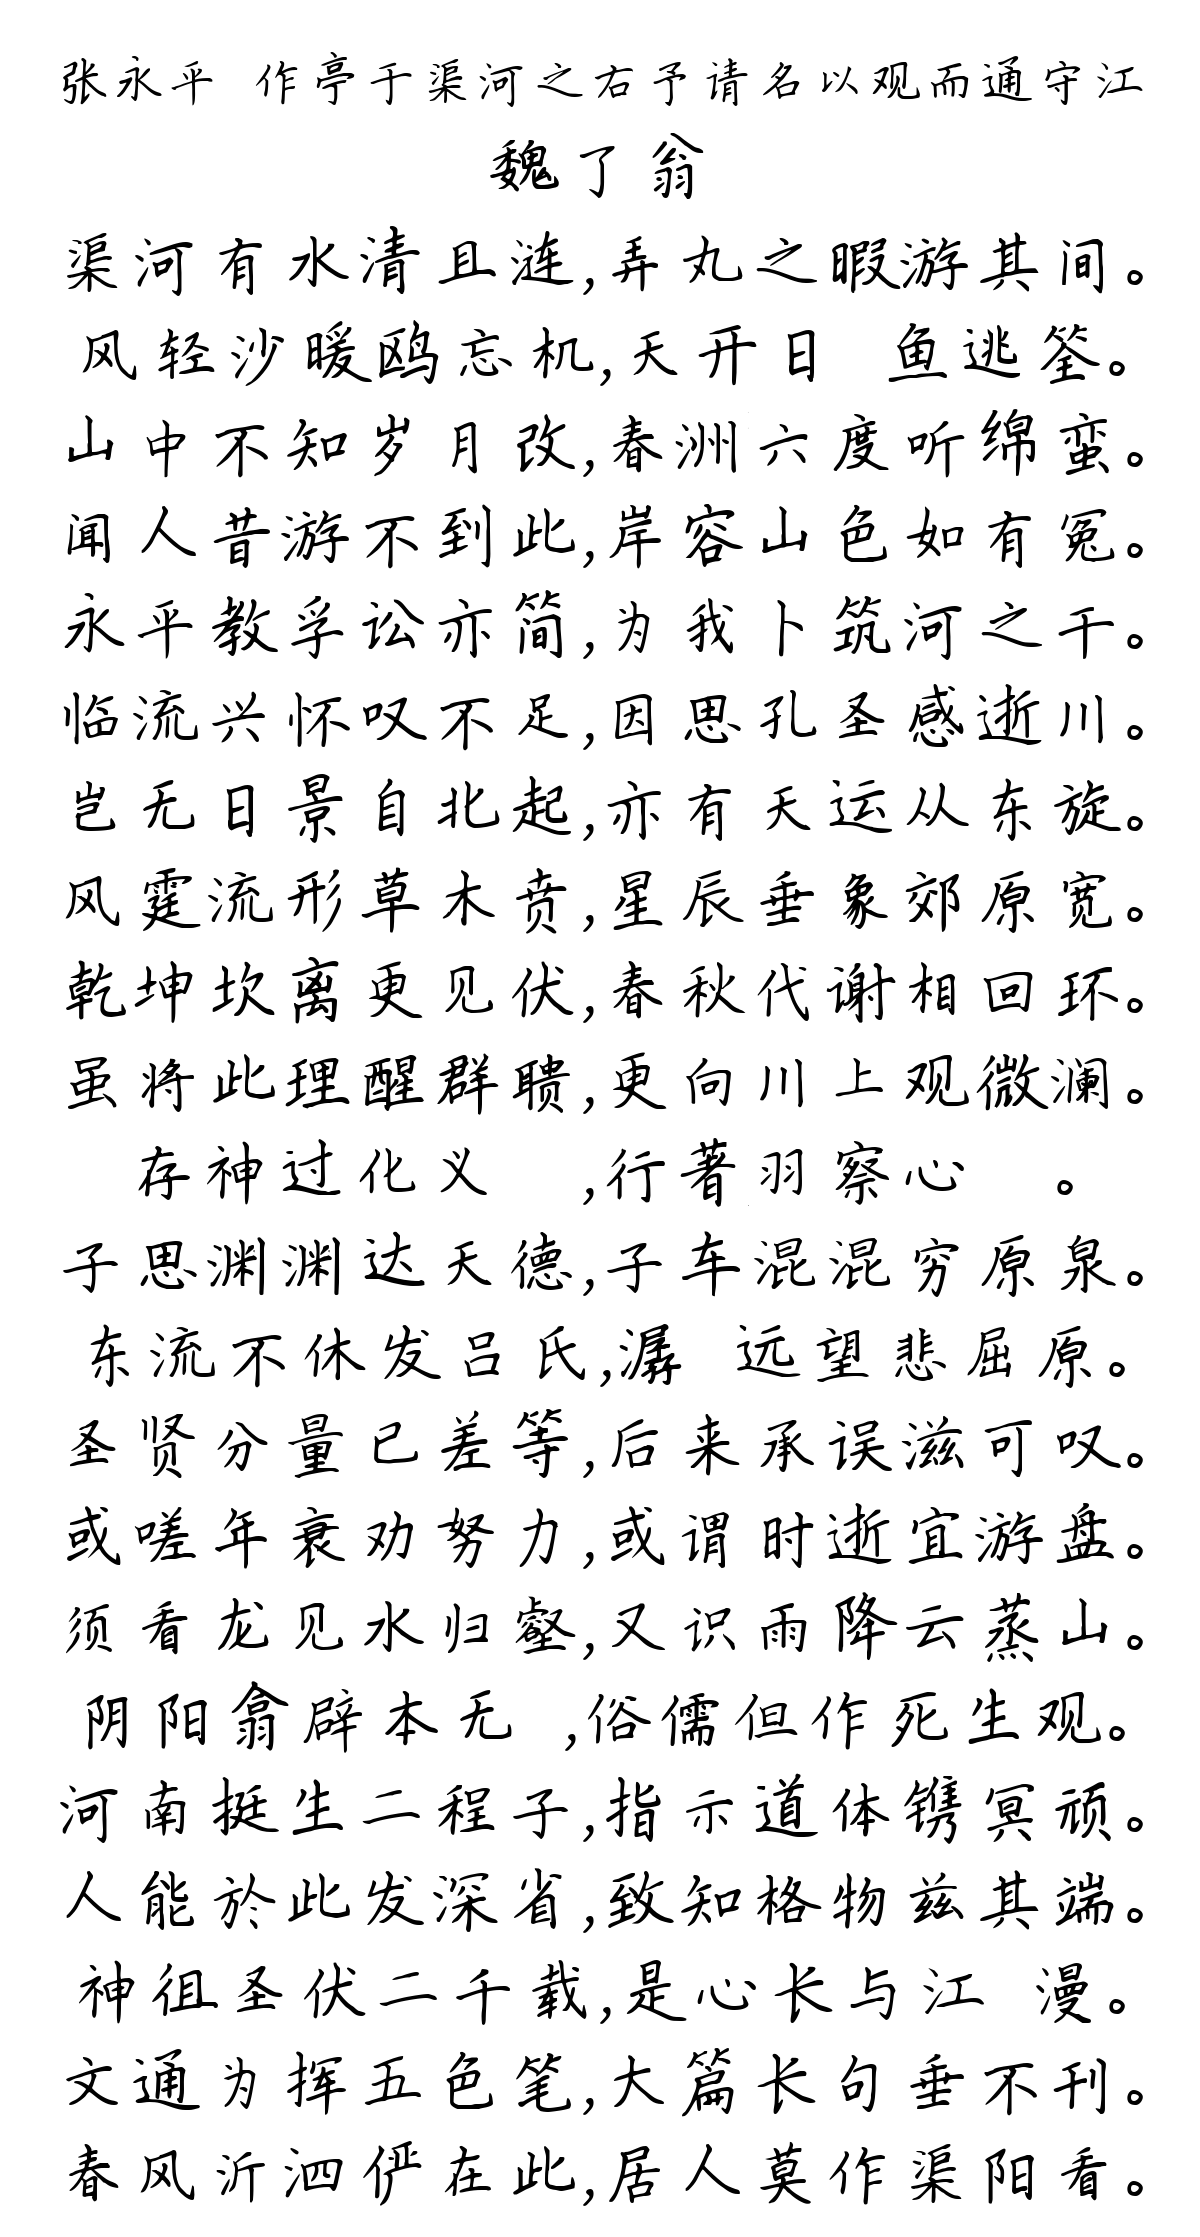 张永平 作亭于渠河之右予请名以观而通守江
魏了翁
渠河有水清且涟,弄丸之暇游其间。
风轻沙暖鸥忘机,天开日 鱼逃筌。
山中不知岁月改,春洲六度听绵蛮。
闻人昔游不到此,岸容山色如有冤。
永平教孚讼亦简,为我卜筑河之干。
临流兴怀叹不足,因思孔圣感逝川。
岂无日景自北起,亦有天运从东旋。
风霆流形草木贲,星辰垂象郊原宽。
乾坤坎离更见伏,春秋代谢相回环。
虽将此理醒群聩,更向川上观微澜。
存神过化义 ,行著羽察心 。
子思渊渊达天德,子车混混穷原泉。
东流不休发吕氏,潺 远望悲屈原。
圣贤分量已差等,后来承误滋可叹。
或嗟年衰劝努力,或谓时逝宜游盘。
须看龙见水归壑,又识雨降云蒸山。
阴阳翕辟本无 ,俗儒但作死生观。
河南挺生二程子,指示道体镌冥顽。
人能於此发深省,致知格物兹其端。
神徂圣伏二千载,是心长与江 漫。
文通为挥五色笔,大篇长句垂不刊。
春风沂泗俨在此,居人莫作渠阳看。